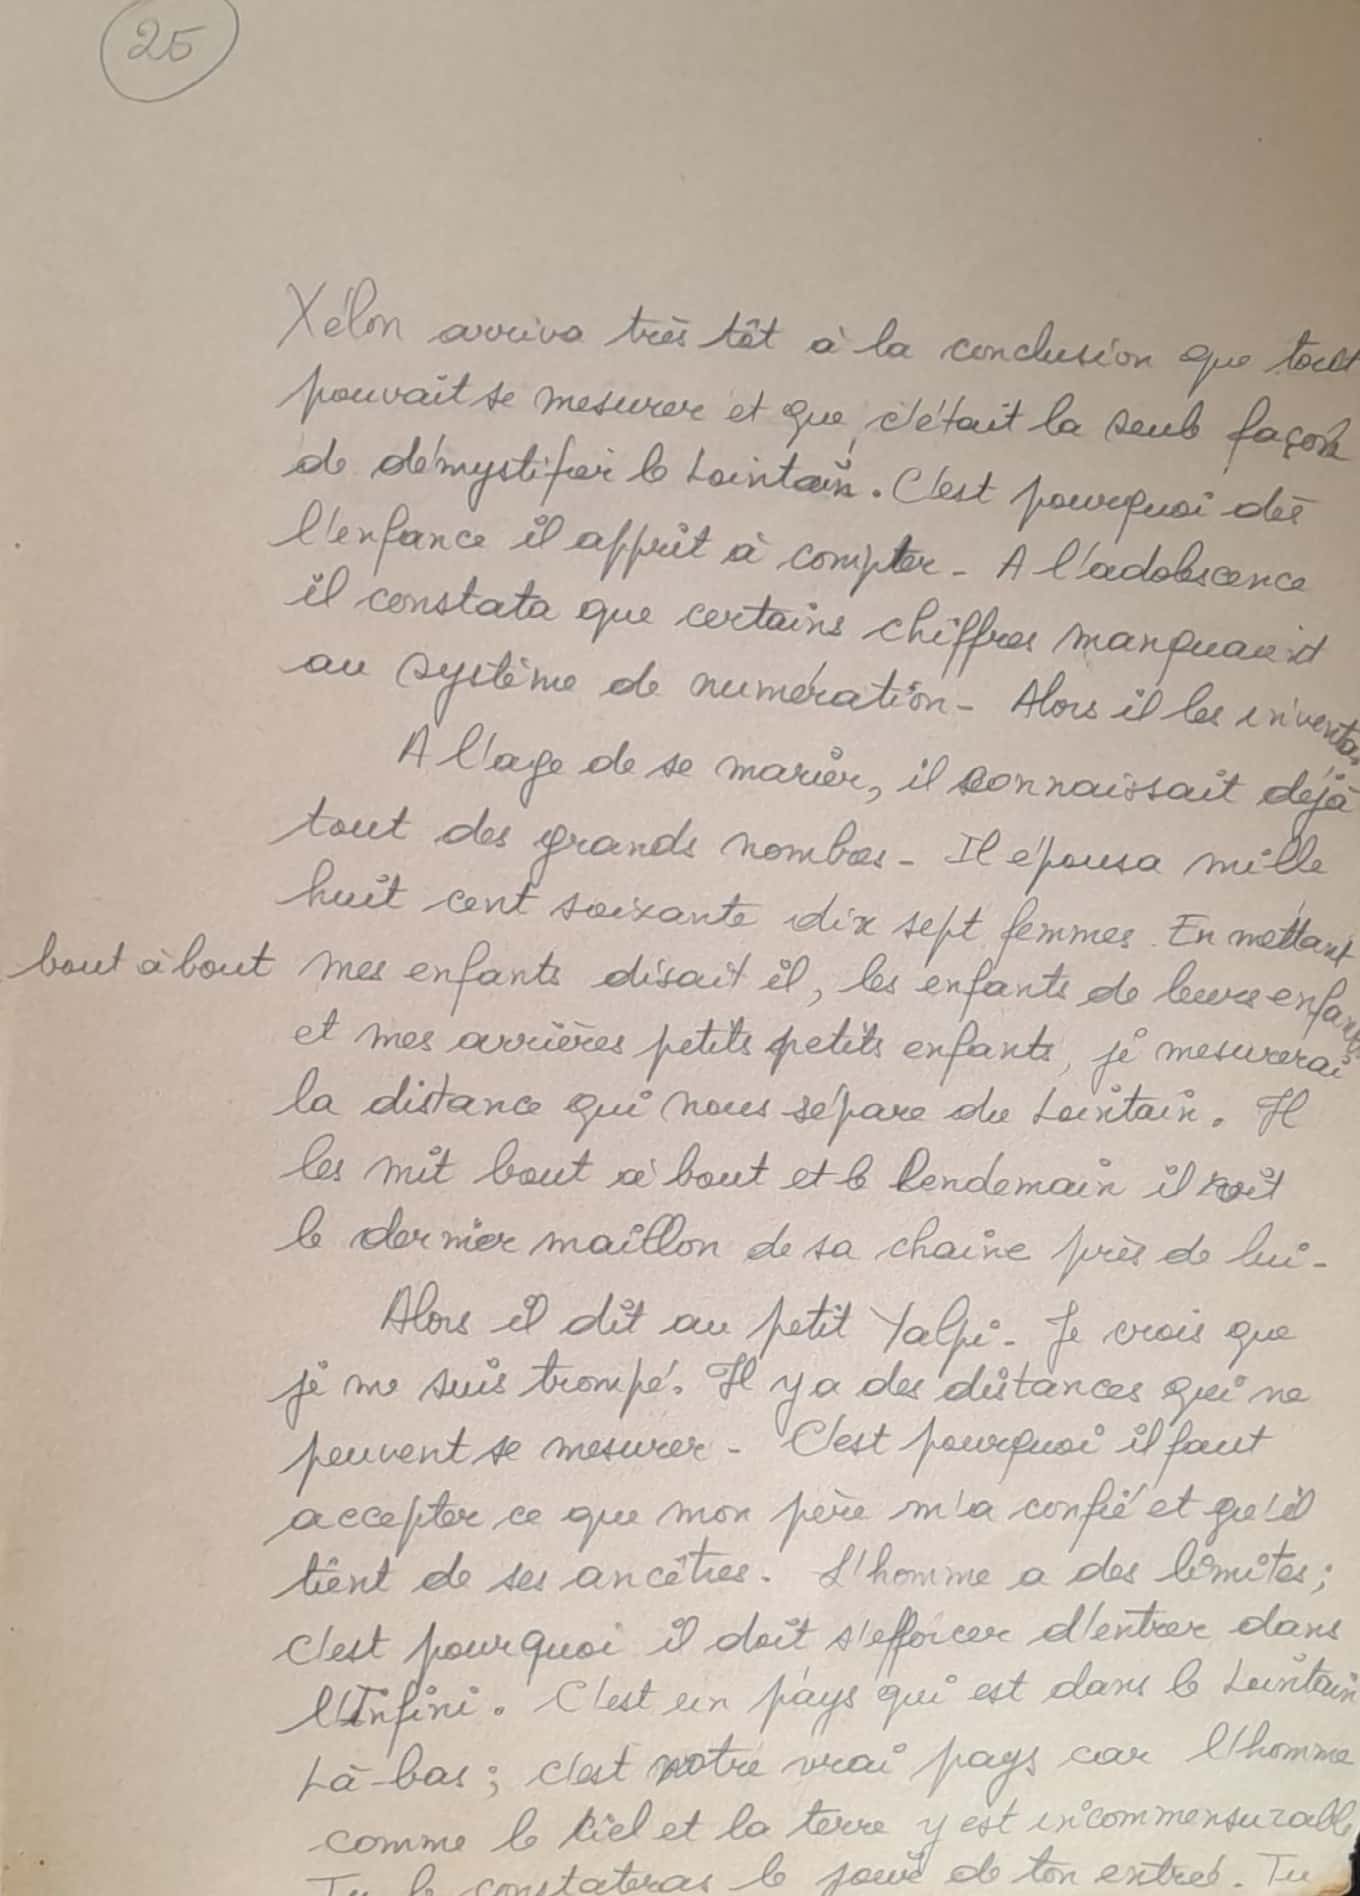 25
Xélon arriva très tôt à la conclusion que tout
pouvait se mesurer et que c'était la seule façon
de démystifier le Lointain. C'est pourquoi dès
l'enfance il apprit à compter - A l'adolescence
il constata que certains chiffres manquaient
au système de numération - Alors il les inventa.
A l'age de se marier, il connaissait déjà
tout des grands nombres - Il épousa mille
huit cent soixante dix sept femmes. En mettant
bout à bout mes enfants disait il, les enfants de leurs enfants
et mes arrières petits petits enfants, je mesurerai
la distance qui nous sépare du Lointain. Il
les mit bout à bout et le lendemain il vit
le dernier maillon de sa chaine près de lui -
Alors il dit au petit Yalpi - Je crois que
je me suis trompé. Il y a des distances qui ne
peuvent se mesurer - C'est pourquoi il faut
accepter ce que mon père m'a confié et qu'il
tient de ses ancêtres. L'homme a des limites ;
c'est pourquoi il doit s'efforcer d'entrer dans
l'Infini. C'est un pays qui est dans le Lointain
Là-bas ; c'est notre vrai pays car l'homme
comme le ciel et la terre y est incommensurable
Tu le constateras le jour de ton entrée. Tu